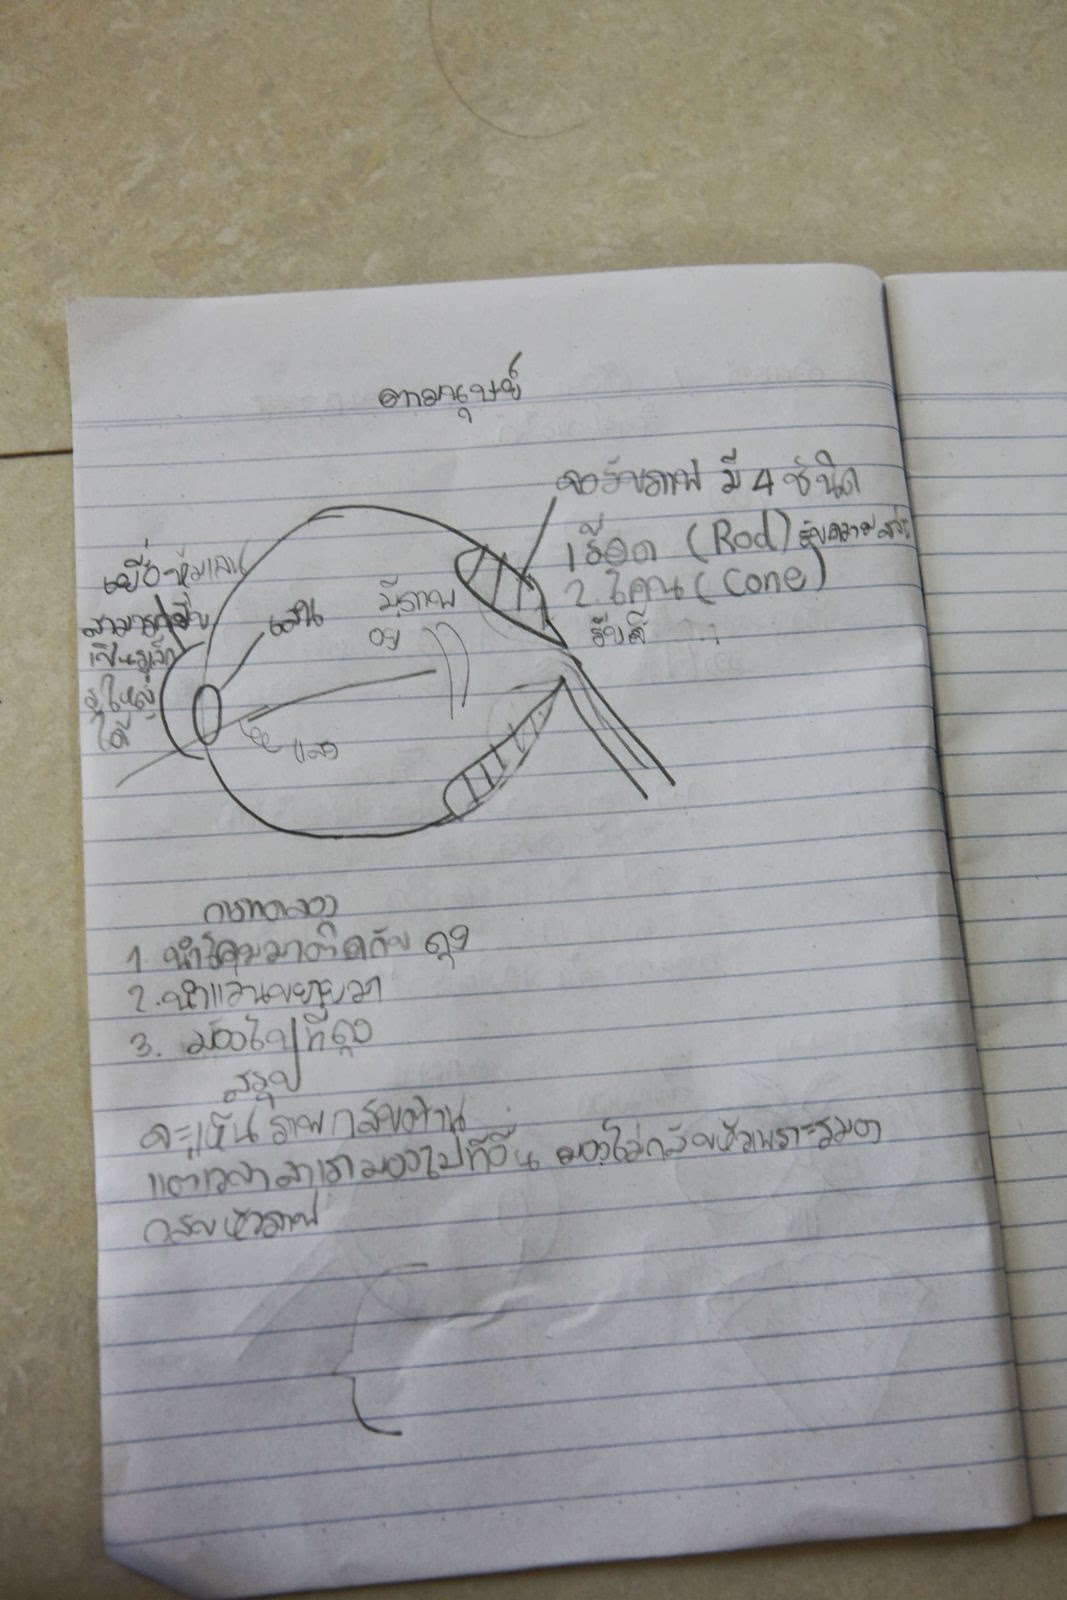 ตามนุษย์
จอรับภาพ มี 4 ชนิด
1 รีอด (Rod) รับความ
2. โคน (Cone)
รับสี
เยื่อหุ้มเลน
สามารถ
เป็นรูเล็ก
รูใหญ่
ได้
เลน
มีภาพ
อยู่
แสง
การทดลอง
1. นำโคมมาติดกับ ถุง
2. นำแว่นขยายมา
3. มองไปที่ถุง
สรุป
จะเห็นภาพกลับด้าน
แต่เวลาเรามองไปที่อื่น มองไม่กลับหัวเพราะ
กลับหัวภาพ